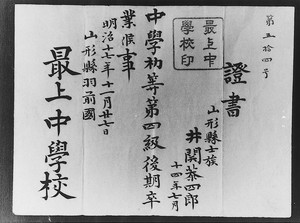 第五拾四号
證書
山形縣士族
井関恭四郎
十四年七月
最上中
學校印
中學初等第四級後期卒
業候事
明治十七年十二月廿七日
山形縣羽前國
最上中學校